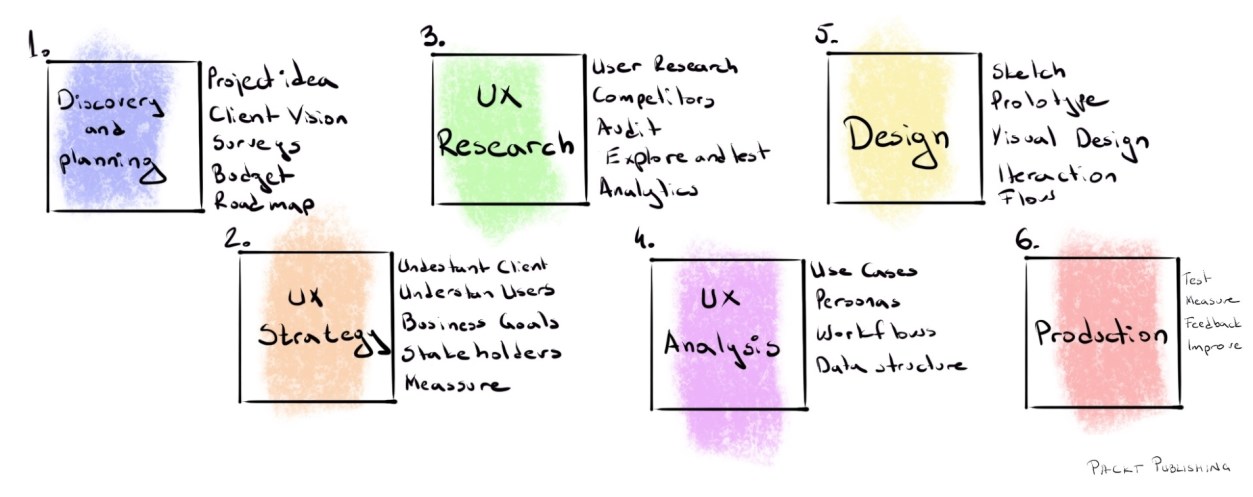 1.
Discovery
and
planning
Project idea
Client Vision
Surveys
Budget
Roadmap
2.
UX
Strategy
Undestant Client
Understan Users
Business Goals
Stakeholders
Meassure
3.
UX
Research
User Research
Competitors
Audit
Explore and test
Analytics
4.
UX
Analysis
Use Cases
Personas
Workflows
Data structure
5.
Design
Sketch
Prototype
Visual Design
Iteraction
Flow
6.
Production
Test
Measure
Feedback
Improve
PACKT PUBLISHING